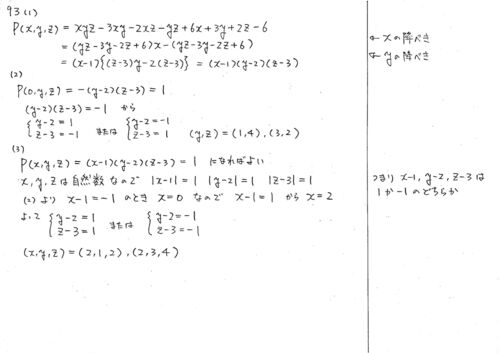 93 (1)
P(x,y,z) = xyz-3xy-2xz-yz+6x+3y+2z-6
= (yz-3y-2z+6)x-(yz-3y-2z+6) ← xの降べき
= (x-1){(z-3)y-2(z-3)} = (x-1)(y-2)(z-3) ← yの降べき
(2)
P(0,y,z) = -(y-2)(z-3) = 1
(y-2)(z-3) = -1 から
{y-2=1 {y-2=-1
{z-3=-1 または {z-3=1 (y,z)=(1,4),(3,2)
(3)
P(x,y,z) = (x-1)(y-2)(z-3) = 1 になればよい
x,y,zは自然数なので |x-1|=1 |y-2|=1 |z-3|=1 つまり x-1, y-2, z-3 は
1か-1のどちらか
(2)より x-1=-1 のとき x=0 なので x-1=1 から x=2
よって {y-2=1 {y-2=-1
{z-3=1 または {z-3=-1
(x,y,z)=(2,1,2),(2,3,4)